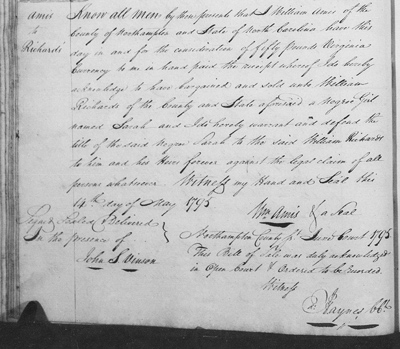 Amis
to
Richards
Know all men by these presents that I William Amis of the
County of Northampton and State of North Carolina have this
day in and for the consideration of fifty pounds Virginia
Currency to me in hand paid the receipt whereof I do hereby
acknowledge to have bargained and sold unto William
Richards of the County and State aforesaid a Negroe Girl
named Sarah and I do hereby warrant and defend the
title of the said Negroe Sarah to the said William Richards
to him and his Heirs forever against the legal claim of all
persons whatsoever. Witness my Hand and Seal this
14th day of May 1795
Wm Amis & a Seal
Signed Sealed & Delivered
In the presence of
John S Vinson
Northampton County Sct June Court 1795
This Bill of Sale was duly acknowledged
in Open Court & Ordered to be recorded.
Witness
Haynes CCk